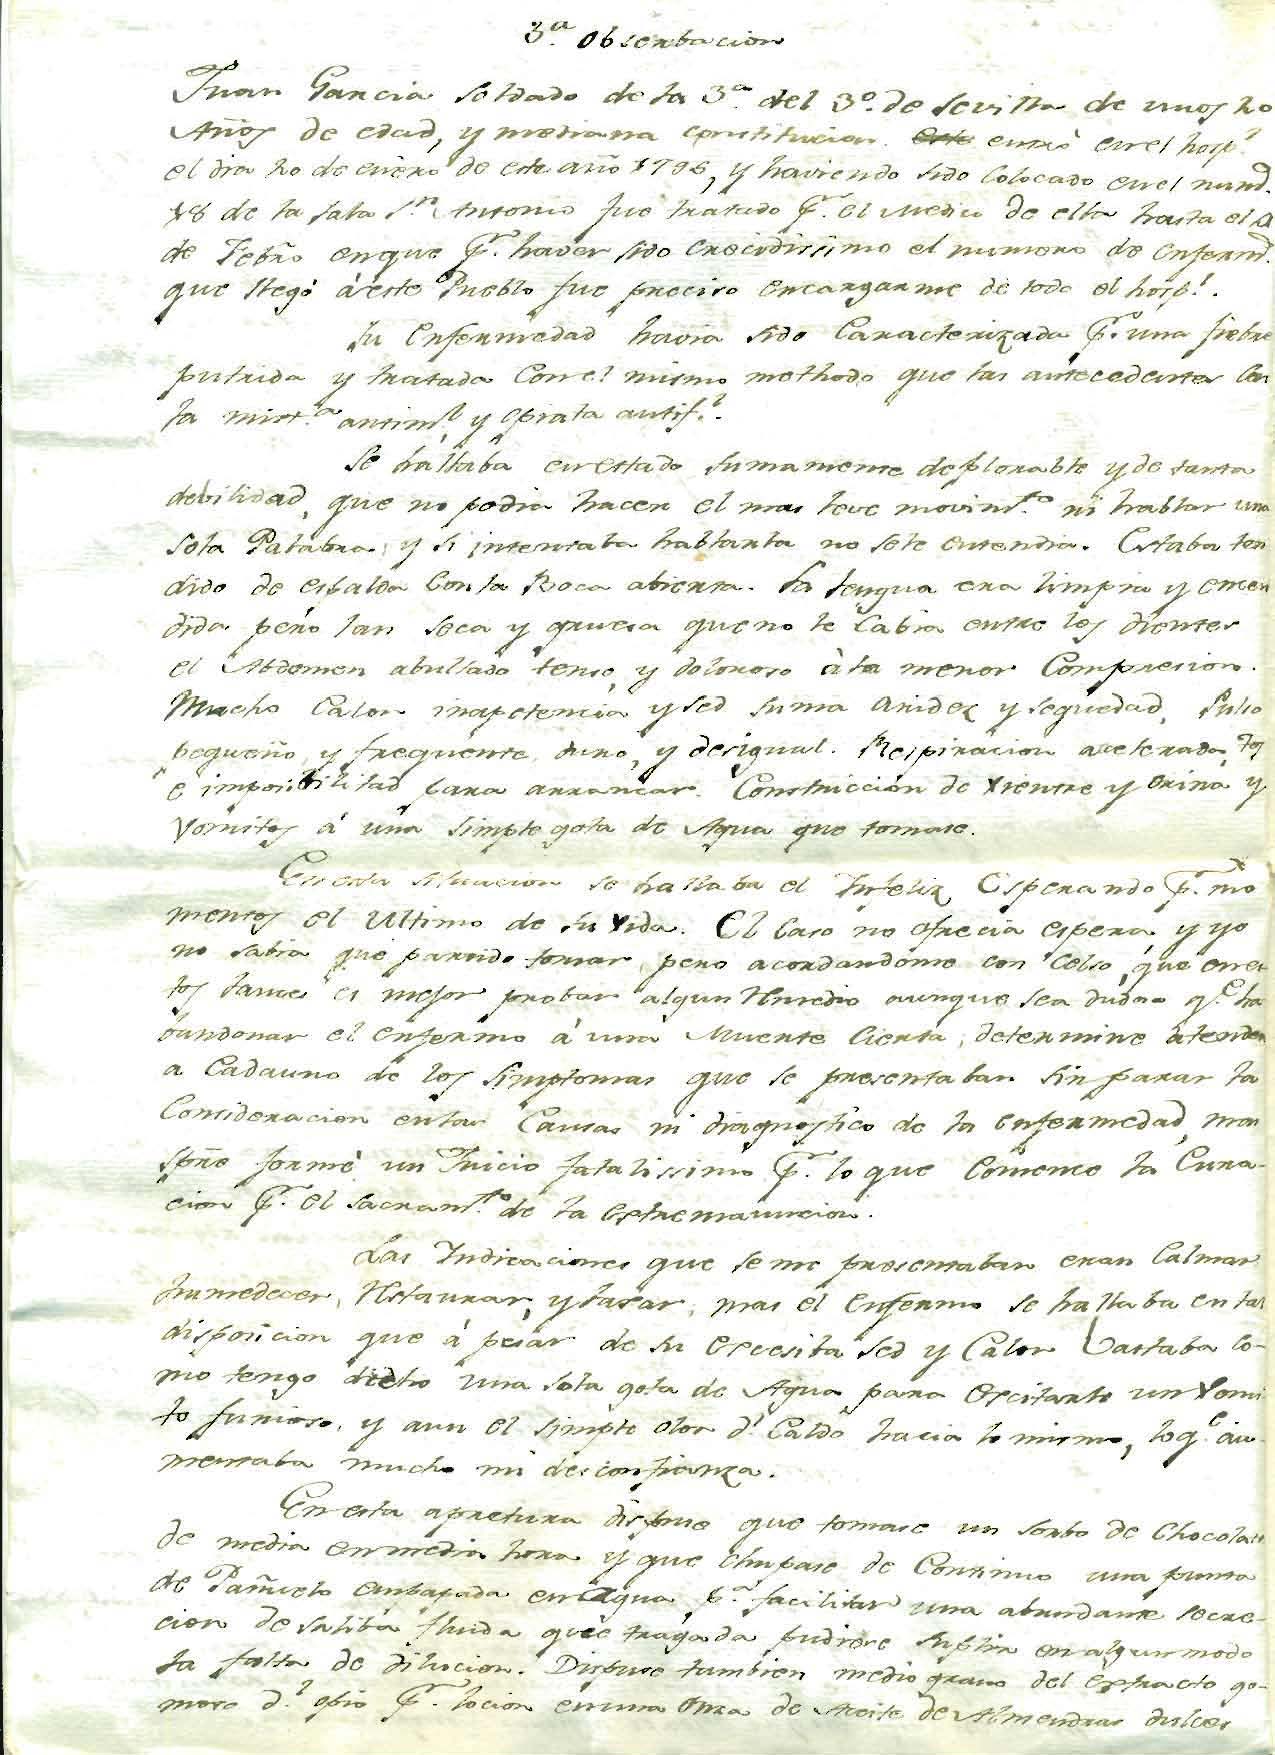 3.ª Obserbacion
Juan Garcia soldado de la 3.ª del 3.º de Sevilla de unos 20
Años de edad, y mediana constitucion. este entrò en el hosp.l
el dia 20 de enèro de este año 1796, y haviendo sido colocado en el num.o
18 de la sala S.n Antonio fue tratado p.r el Medico de ella hasta el
de Febro en que p.r haver sido crecidissimo el numero de enferm.s
que llegó à este Pueblo fue preciso encargarme de todo el hosp.l.
Su Enfermedad havia sido Caracterizada p.r una fiebre
putrida y tratada Con el mismo methodo que las antecedentes Con
la mixt.ª antim.l y opiata antif.l.
Se hallaba en estado sumamente deplorable y de tanta
debilidad, que no podia hacer el mas leve movim.to ni hablar una
sola Palabra, y si intentaba hablarla no se le entendia. Estaba ten
dido de espalda Con la Boca abierta. La lengua era limpia y encen
dida pero tan seca y gruesa que no le Cabia entre los dientes
el Abdomen abultado tenso, y doloroso à la menor Compresion.
Mucho Calor inapetencia y sed suma aridez y sequedad, Pulso
pequeño, y frequente, duro, y desigual. Respiracion acelerada, tos
e imposibilitad para arrancar. Constricción de Vientre y orina y
Vomitos á una simple gota de Agua que tomase.
En esta situacion se hallaba el Infeliz Esperando p.r mo
mentos el Ultimo de su Vida. El Caso no ofrecia espera y yo
no sabia que partido tomar, pero acordandome con Celso, que en es-
tos lances es mejor probar algun Remedio aunque sea dudoso q.e ha
bandonar el enfermo á una Muerte Cierta, determine atender
a Cadauno de los simptomas que se presentaban sin parar la
Consideracion en las Causas ni diagnostico de la enfermedad, mas
spre formè un Juicio fatalissimo p.r lo que Comence la Cura-
cion p.r el sacram.to de la extremauncion.
Las Indicaciones que se me presentaban eran Calmar
humedecer, Restaurar, y laxar, mas el enfermo se hallaba en tal
disposicion que à pesar de su excesiba sed y Calor Vastaba co-
mo tengo dicho una sola gota de Agua para Excitarle un Vomi
to furioso, y aun el simple olor d.l Caldo hacia lo mismo, lo q.e au-
mentaba mucho mi desconfianza.
En esta apretura dispuse que tomase un sorbo de Chocolate
de media en media hora y que chupase de Continuo una punta
de Pañuelo empapada en Agua p.ª facilitar una abundante secre-
cion de saliba fluida que tragada pudiese suplir en algun modo
la falta de dilucion. Dispuse tambien medio grano del extracto go-
moso d.l opio p.r locion en una Onza de Aceite de Almendras dulces